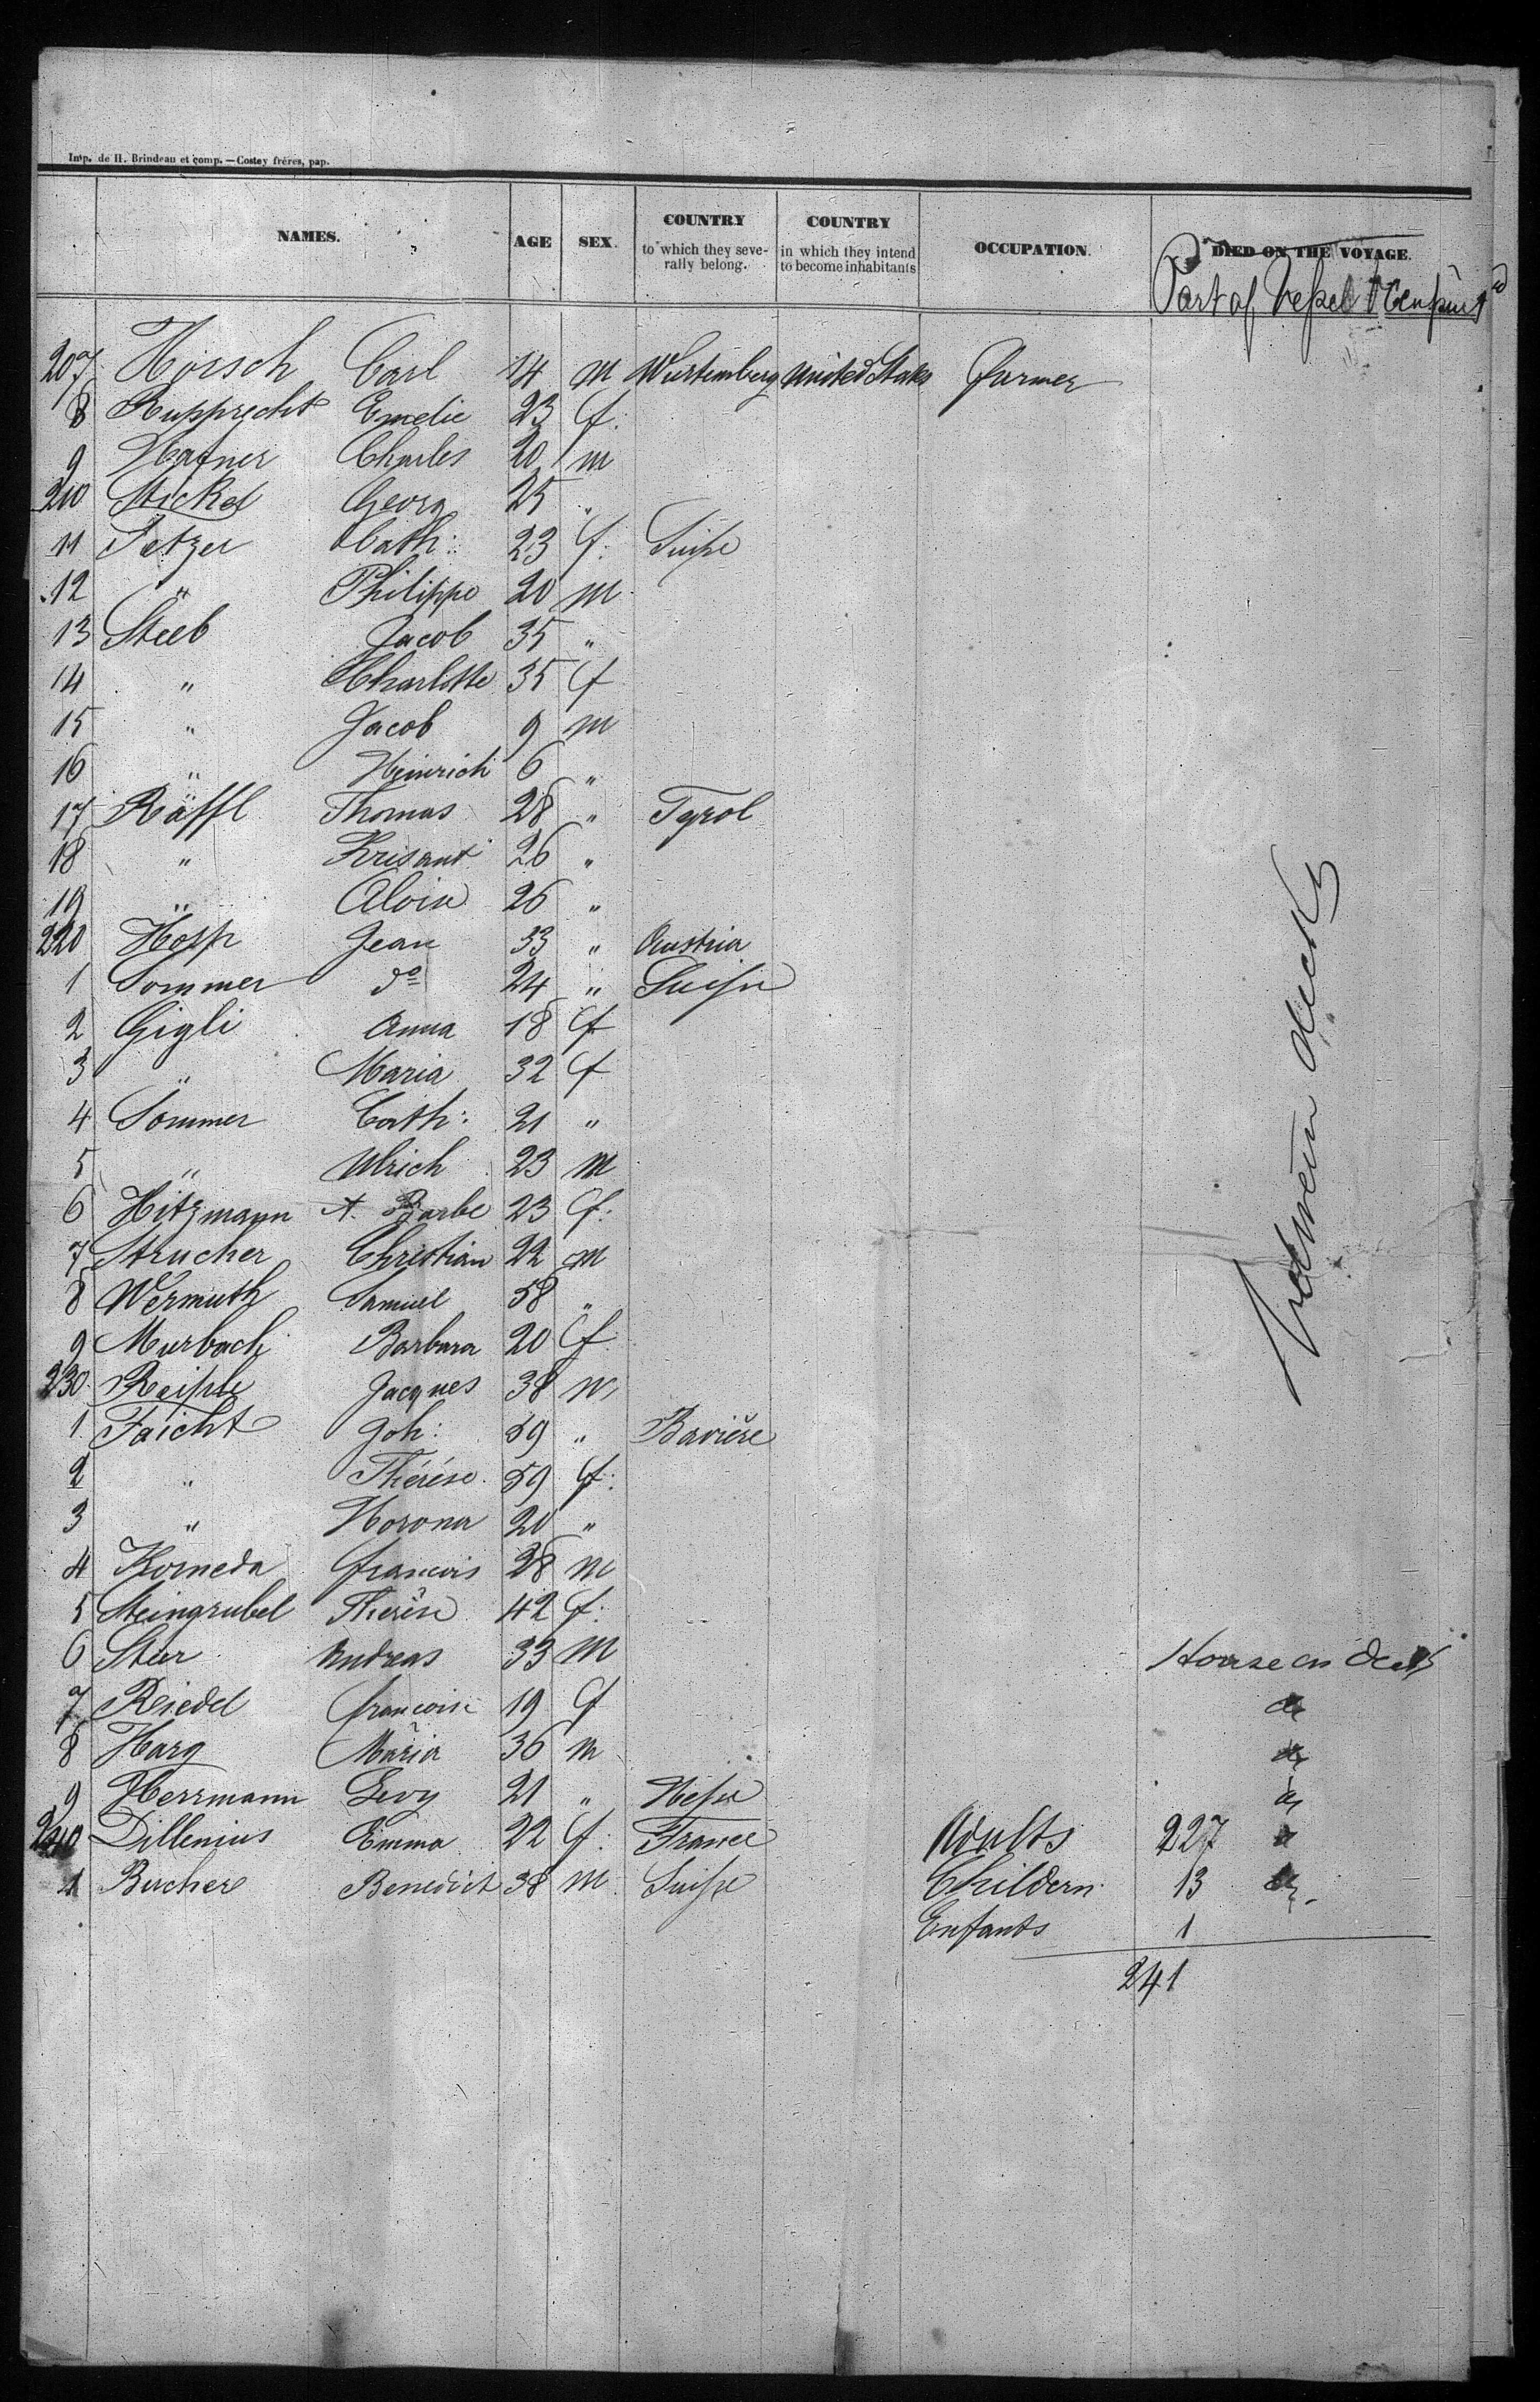 Imp. de H. Brindeau et comp. — Costey fréres, pap.
NAMES. AGE SEX. COUNTRY to which they severally belong. COUNTRY in which they intend to become inhabitants OCCUPATION. DIED ON THE VOYAGE.
Part of Vessel Occupied
207 Horsch Carl 14 M Wurtemberg United States farmer
8 Rupprecht Emelie 23 f.
9 Hafner Charles 20 m
210 Stickel Georg 25 "
11 Tetzer Cath: 23 f. Suisse
12 " Philippe 20 m
13 Steeb Jacob 35 "
14 " Charlotte 35 f
15 " Jacob 9 m
16 " Heinrich 6 "
17 Räffl Thomas 28 " Tyrol
18 " Krisant 26 "
19 " Alois 26 "
220 Hosp Jean 33 " Austria
1 Sommer do 24 " Suisse
2 Gigli Anna 18 f
3 " Maria 32 f
4 Sommer Cath: 21 "
5 " Ulrich 23 m
6 Hitzmann A. Barbe 23 f:
7 Strucher Christian 22 m
8 Wermuth Samuel 58 "
9 Murbach Barbara 20 f.
230 Jacques 38 m
1 Faicht Joh: 59 " Bavière
2 " Thérèse 59 f:
3 " Horona 20 "
4 Korneda francois 28 m
5 Steingrubel Therèse 42 f:
6 Stur Andreas 33 M House on deck
7 Riedel francoise 19 f do
8 Harg Maria 36 m do
9 Herrmann Levy 21 " Hesse do
240 Dillenius Emma 22 f. France Adults 227 do
1 Bucher Benedict 38 m Suisse Childern 13 do.
Enfants 1
241
Between decks